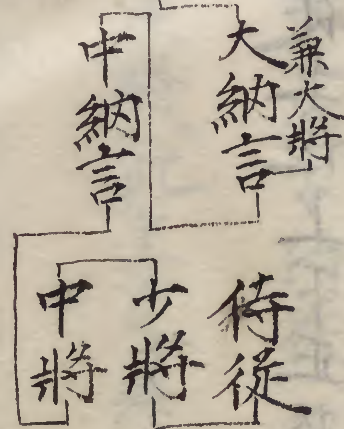 兼大將
大納言
中納言
侍従
少將
中將